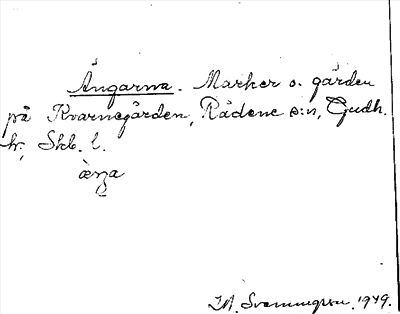 Ängarna. Marker o. gärden
på Kvarnegården, Rådene s:n, Gudh.
hr, Skb. l.
Svenungsson. 1949.